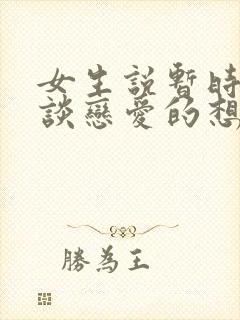 女生説暫時
談戀愛的想
勝為王